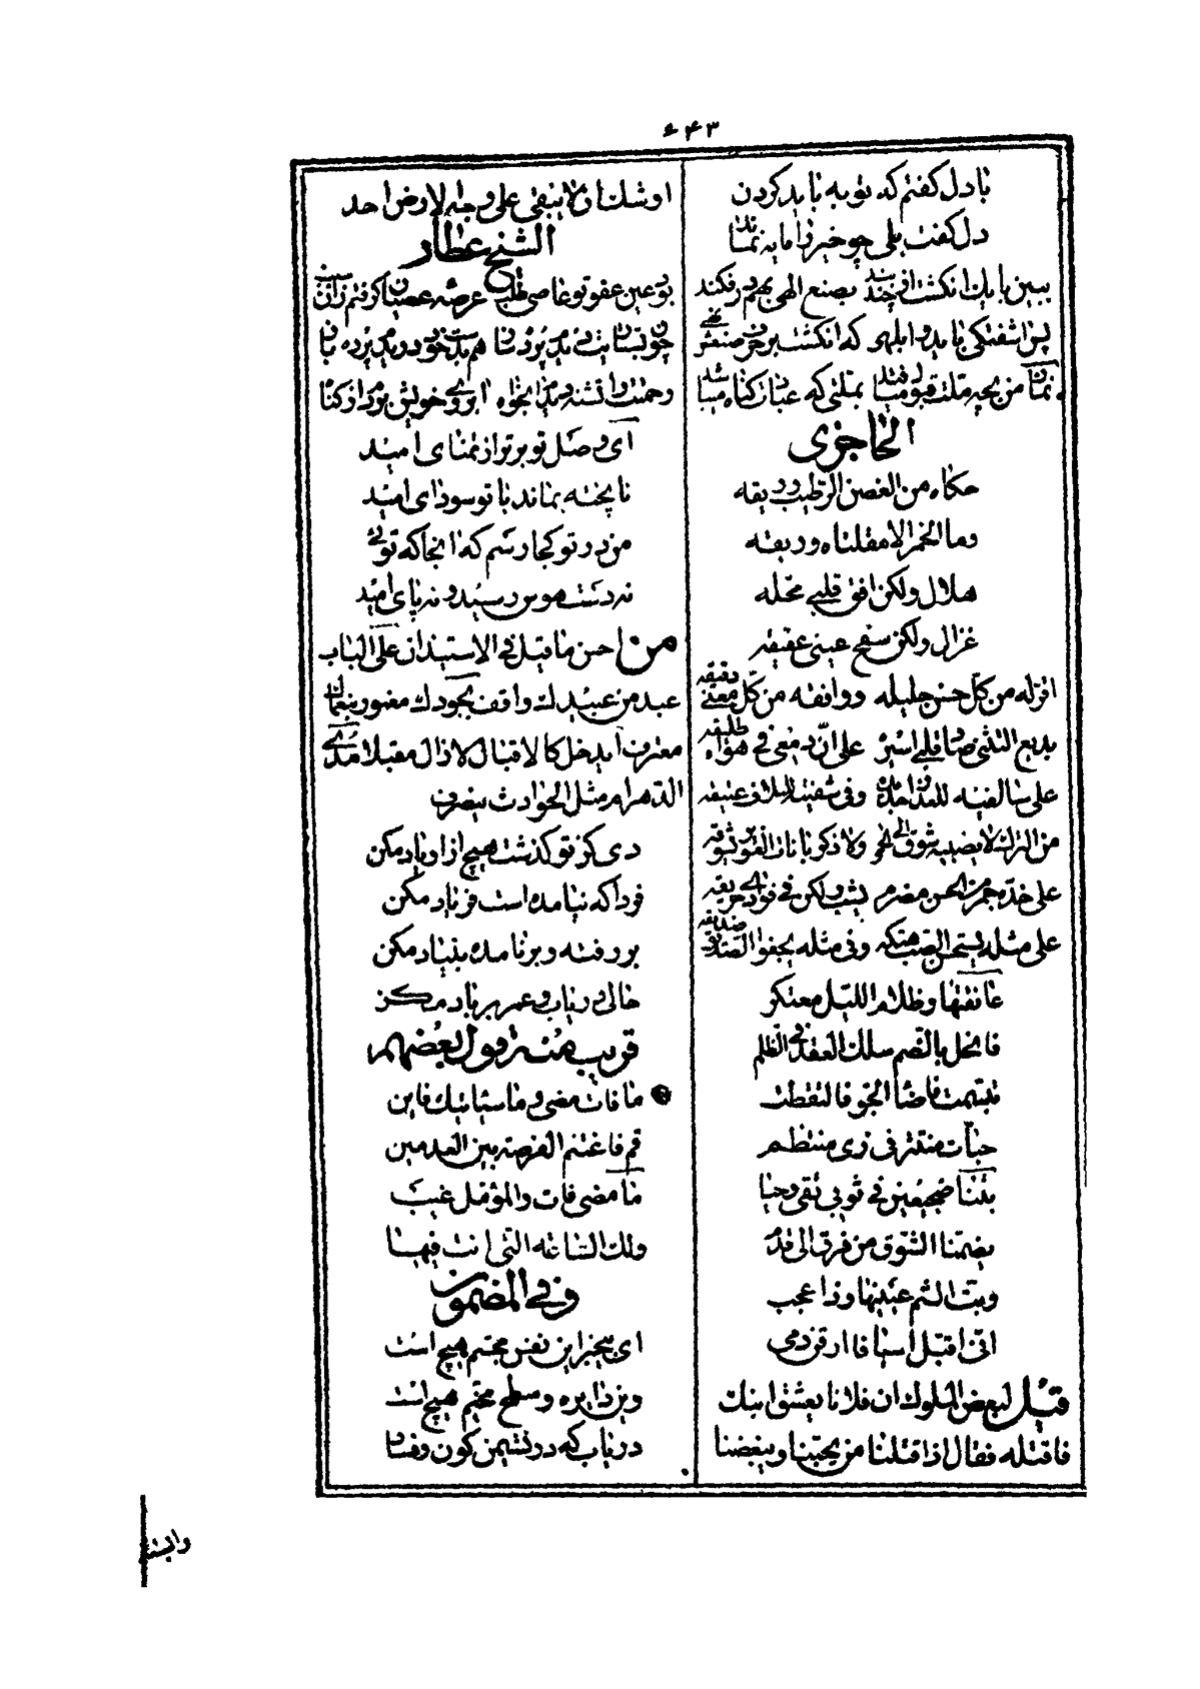 ۶۴۳
با دل گفتم که توبه باید کردن
دل گفت بلی چو خیر زاما یه نماند
ببین با یک انگشت از چند بند بصنع الهی بهم در فکند
پس آشفتگی باید و ابلهی که انگشت بر حرف صنعش نهی
من بچه ملت قبول
الحاجری
حکاه من الغصن الرطیب وریقه
وما الخمر الا مقلتاه وریقه
هلال ولکن افق قلبی محله
غزال ولکن سفح عینی عقیقه
اقر له من کل حسن جلیله ووافقه من کل معنی دقیقه
بدیع التثنی صار قلبی اسیره علی ان دمعی فی هواه طلیقه
علی سالفیه للعذار جدیده وفی شفتیه للسلاف عتیقه
من الترک لا یصبیه شوق الی الحمی ولا ذکر بانات الغویر تشوقه
علی خده جمر من الحسن مضرم یشب ولکن فی فؤادی حریقه
علی مثله یستحسن الصب هتکه وفی مثله یجفو الصدیق صدیقه
عانقتها وظلام اللیل معتکر
فانحل بالضم سلک العقد فی الظلم
تبسمت فاضاء الجو فالتقطت
حبات منتثر فی ضوء منتظم
بتنا ضجیعین فی ثوبی تقی وحیا
یضمنا الشوق من فرق الی قدم
وبت الثم عینیها وذا عجب
انی اقبل اسیافا ارقن دمی
قیل لبعض الملوک ان فلانا یعشق ابنتک
فاقتله فقال اذا قتلنا من یحبنا ویبغضنا
اوشک ان لا یبقی علی وجه الارض احد
الشیخ عطار
بود عین عفو تو عاصی طلب عرصه عصیان گرفتم زان سبب
چون بستاریت دیدم پرده ساز هم بدست خود دریدم پرده باز
رحمتت را تشنه دیدم آبخواه آبروی خویش بردم از گناه
ای وصل تو برتر از تمنای امید
ناپخته بماند با تو سودای امید
من در تو کجا رسم که آنجا که توئی
نه دست هوس رسید و نه پای امید
من احسن ما قیل فی الاستیذان علی الباب
عبد من عبیدک واقف بجودک مغمور بنعماک
معترف أیدخل کالاقبال لا زال مقبلا مدی
الدهر ام مثل الحوادث ینصرف
دی کز تو گذشت هیچ از او یاد مکن
فردا که نیامده است فریاد مکن
بر رفته و بر نامده بنیاد مکن
حالی دریاب و عمر برباد مکن
قریب منه قول بعضهم
ما فات مضی وما سیاتیک فاین
قم فاغتنم الفرصة بین العدمین
ما مضی فات والمؤمل غیب
ولک الساعة التی انت فیها
وفی المضمون
ای بیخبر این نفس مجسم هیچ است
وین دایره و سطح مخیم هیچ است
دریاب که در نشیمن کون و فساد
وابسته